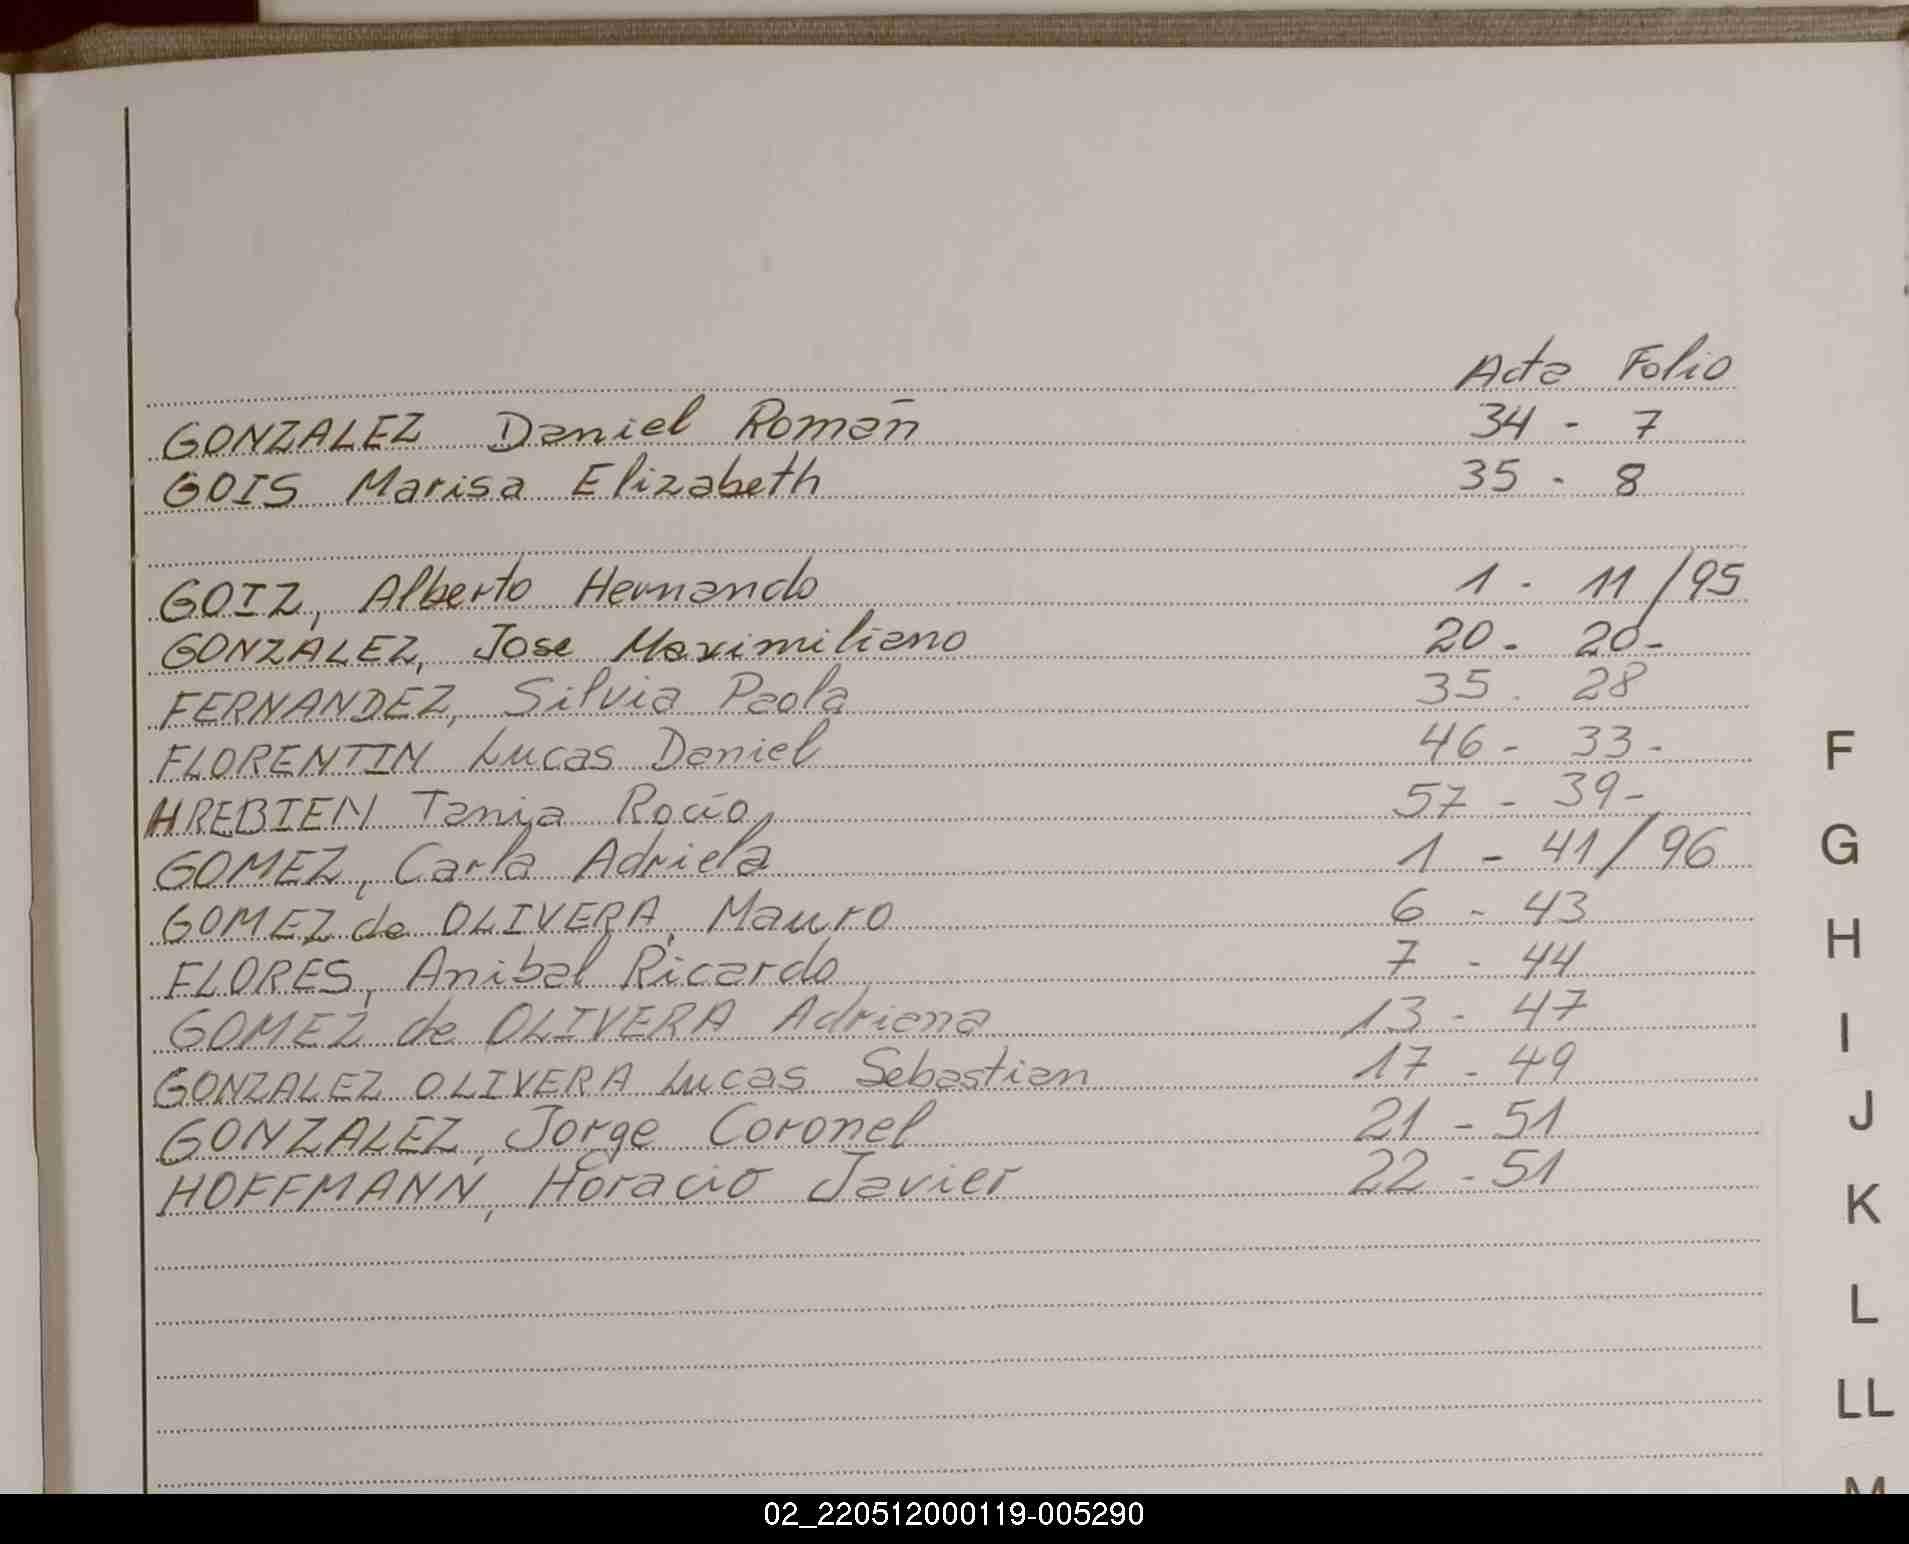 Acta Folio
GONZALEZ Daniel Román 34 - 7
GOIS Marisa Elizabeth 35 - 8
GOIZ, Alberto Hernando 1 - 11/95
GONZALEZ, Jose Maximiliano 20 - 20 -
FERNANDEZ, Silvia Paola 35 - 28
FLORENTIN Lucas Daniel 46 - 33 -
HREBIEN Tania Rocío 57 - 39 -
GOMEZ, Carla Adriela 1 - 41/96
GOMEZ de OLIVERA, Mauro 6 - 43
FLORES, Anibal Ricardo 7 - 44
GOMEZ de OLIVERA Adriana 13 - 47
GONZALEZ OLIVERA Lucas Sebastian 17 - 49
GONZALEZ, Jorge Coronel 21 - 51
HOFFMANN, Horacio Javier 22 - 51
F
G
H
I
J
K
L
LL
M
02_220512000119-005290